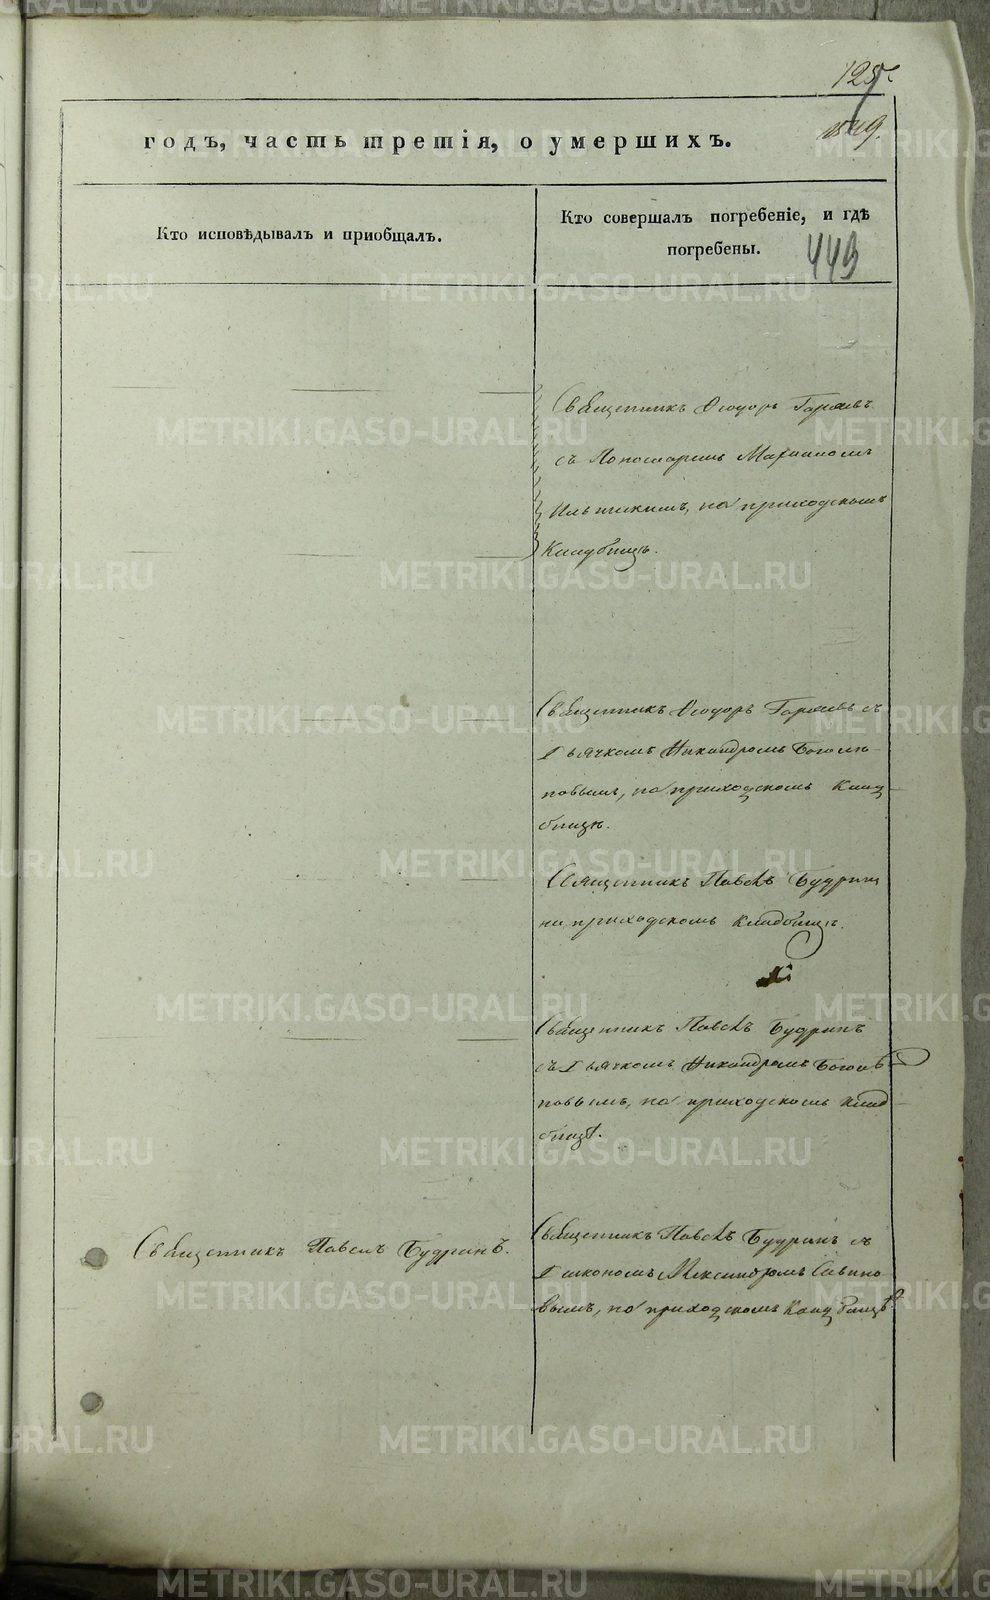 125
годъ, часть третія, о умершихъ.
Кто исповѣдывалъ и пріобщалъ.
Кто совершалъ погребеніе, и гдѣ
погребены.
449
Священникъ Ѳеодоръ
съ Пономаремъ
на приходскомъ
Кладбищѣ.
Священникъ Ѳеодоръ съ
Дьячкомъ Никандромъ
повымъ, на приходскомъ Клад
бищѣ.
Священникъ Павелъ Будринъ
на приходскомъ кладбищѣ.
Священникъ Павелъ Будринъ
съ Дьячкомъ Никандромъ
повымъ, на приходскомъ клад
бищѣ.
Священникъ Павелъ Будринъ.
Священникъ Павелъ Будринъ съ
Дьякономъ Александромъ Савино-
вымъ, на приходскомъ Кладбищѣ.
METRIKI.GASO-URAL.RU